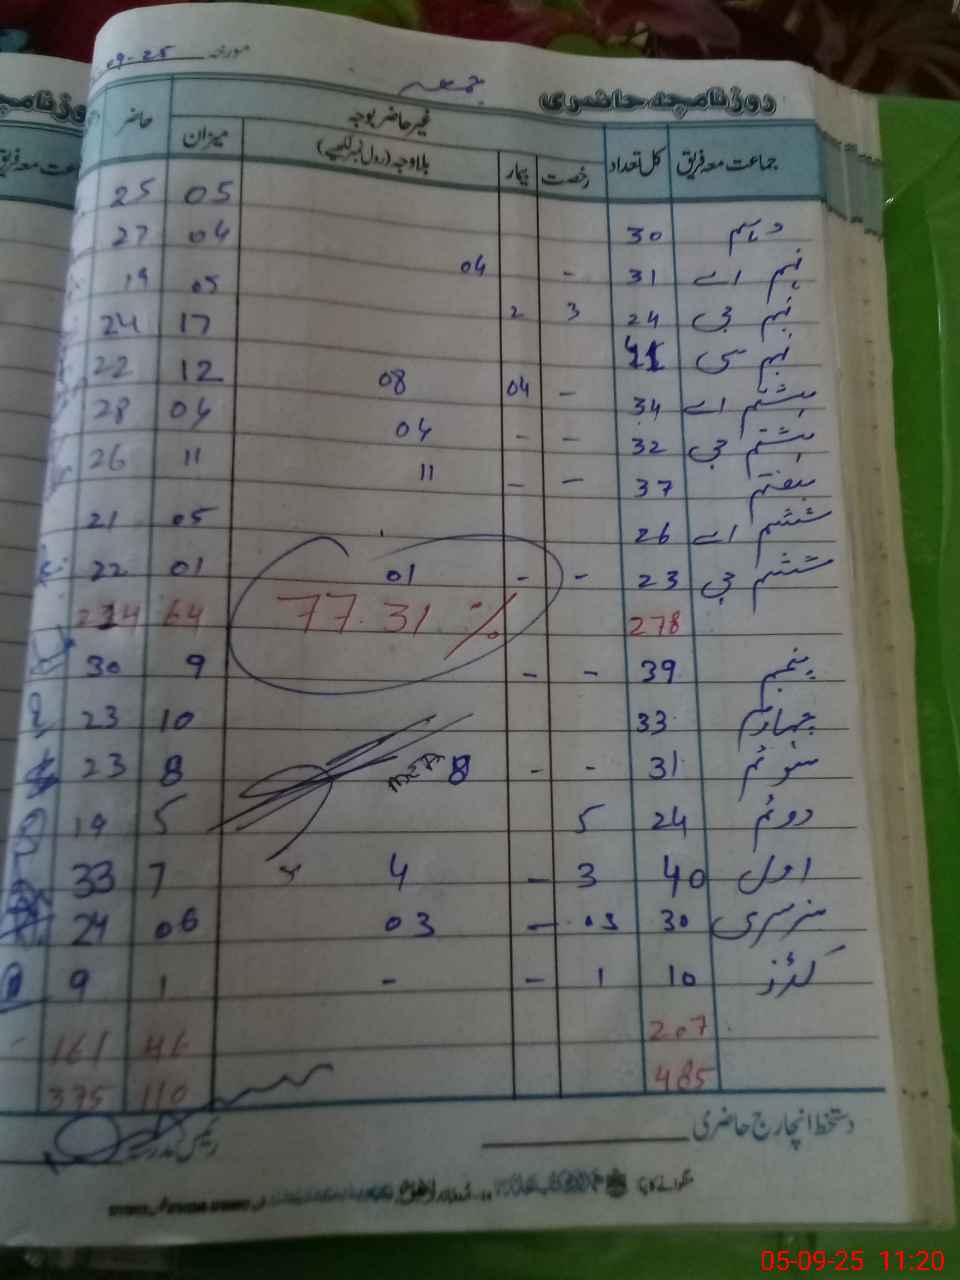 مورخہ 09-25
روزنامچہ حاضری جمعہ
جماعت معہ فریق کل تعداد غیر حاضر بوجہ میزان حاضر
رخصت بیمار بلاوجہ (رول نمبر لکھیے)
دہم 30 05 25
نہم اے 31 - 04 04 27
نہم بی 24 3 2 05 19
نہم سی 41 17 24
ہشتم اے 34 - 04 08 12 22
ہشتم بی 32 - - 04 04 28
ہفتم 37 - - 11 11 26
ششم اے 26 05 21
ششم بی 23 - - 01 01 22
278 77.31 % 64 214
پنجم 39 - - 9 30
چہارم 33 10 23
سوئم 31 - - 8 8 23
دوئم 24 5 5 19
اول 40 3 - 4 7 33
نرسری 30 03 - 03 06 24
کڈز 10 1 - - 1 9
207 46 161
485 110 375
دستخط انچارج حاضری رئیس مدرسہ
05-09-25 11:20